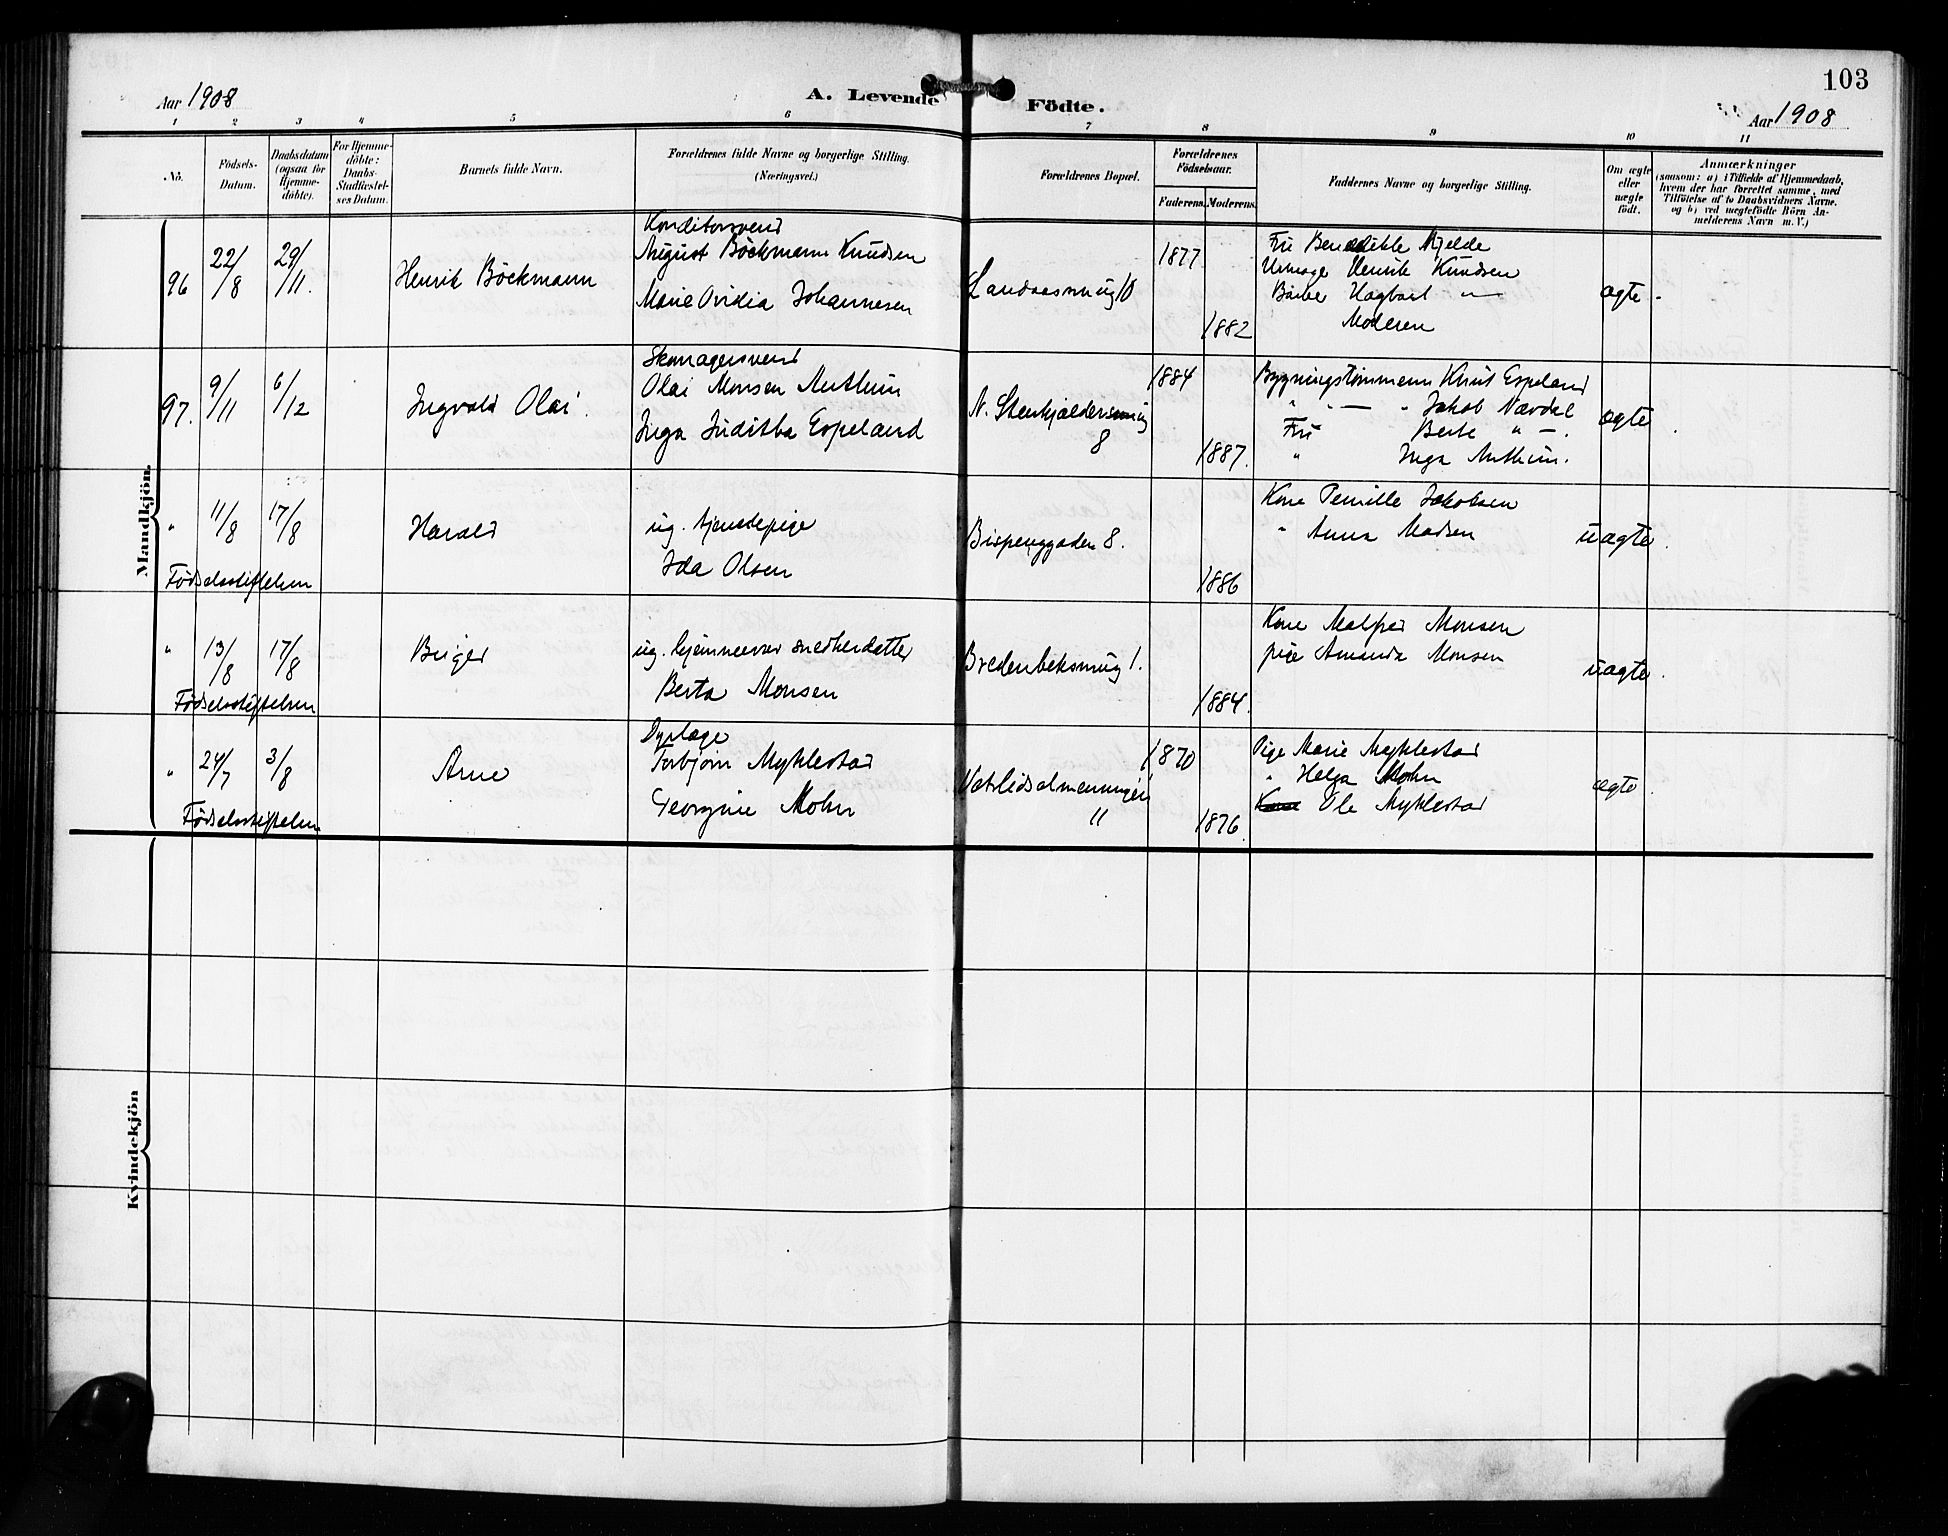 103
Aar 1908
A. Levende Födte.
Aar 1908
1 2 3 4 5 6 7 8 9 10 11
No.
Födsels-Datum.
Daabsdatum (ogsaa for Hjemmedöbte).
For Hjemmedöbte: Daabs-Stadfæstelses Datum.
Barnets fulde Navn.
Forældrenes fulde Navne og borgerlige Stilling. (Næringsvei.)
Forældrenes Bopæl.
Forældrenes Födselsaar.
Faderens. Moderens.
Faddernes Navne og borgerlige Stilling.
Om ægte eller uægte födt.
Anmærkninger
(saasom: a) i Tilfælde af Hjemmedaab,
hvem der har forrettet samme, med
Tilföielse af to Daabsvidners Navne.
og b) ved uægtefödte Börn An-
melderens Navn m. V.)
Mandkjön.
Konditorsvend
96 22/8 29/11. Henrik Böckmann
August Böckmann Knudsen
Marie Ovidia Johannesen
Landaassmug 10
1877
1882
Fru Benedikte Mjelde
Henrik Knudsen
Barber Hagbart " —
Moderen
ægte.
Skomagersvend
97. 9/11 6/12 Ingvald Olai.
Olai Monsen Muthun
Inga Juditha Espeland
N. Stenkjeldersmug
8
1884
1887.
Bygningstømmerm Knut Espeland
" — " Jakob Nævdal
Fru Berte " —.
" Inga Muthun.
ægte.
" 11/8 17/8 Harald
Födselsstiftelsen
ug. tjenestepige
Ida Olsen
Bispenggaden 8.
1886
Kone Pernille Jakobsen
" Anna Madsen
uægte.
" 13/8 17/8 Birger
Födselsstiftelsen
ug. hjemmeværende snedkerdatter
Berta Monsen
Bredenbeksmug 1.
1884.
Kone Malfred Monsen
pige Amanda Monsen
uægte.
Dyrlæge
" 24/7 3/8 Arne
Födselsstiftelsen
Torbjörn Myklestad
Georgine Mohn
Vetrlidsalmenningen
11
1870
1876.
Pige Marie Myklestad
" Helga Mohn
Ole Myklestad
ægte.
Kvindekjön